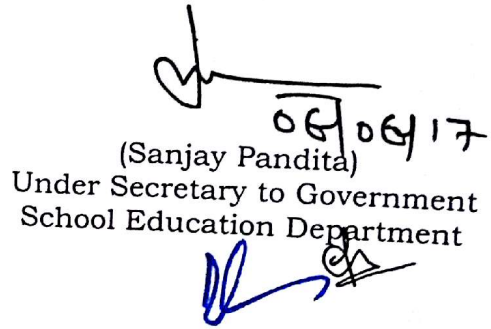 06/06/17
(Sanjay Pandita)
Under Secretary to Government
School Education Department